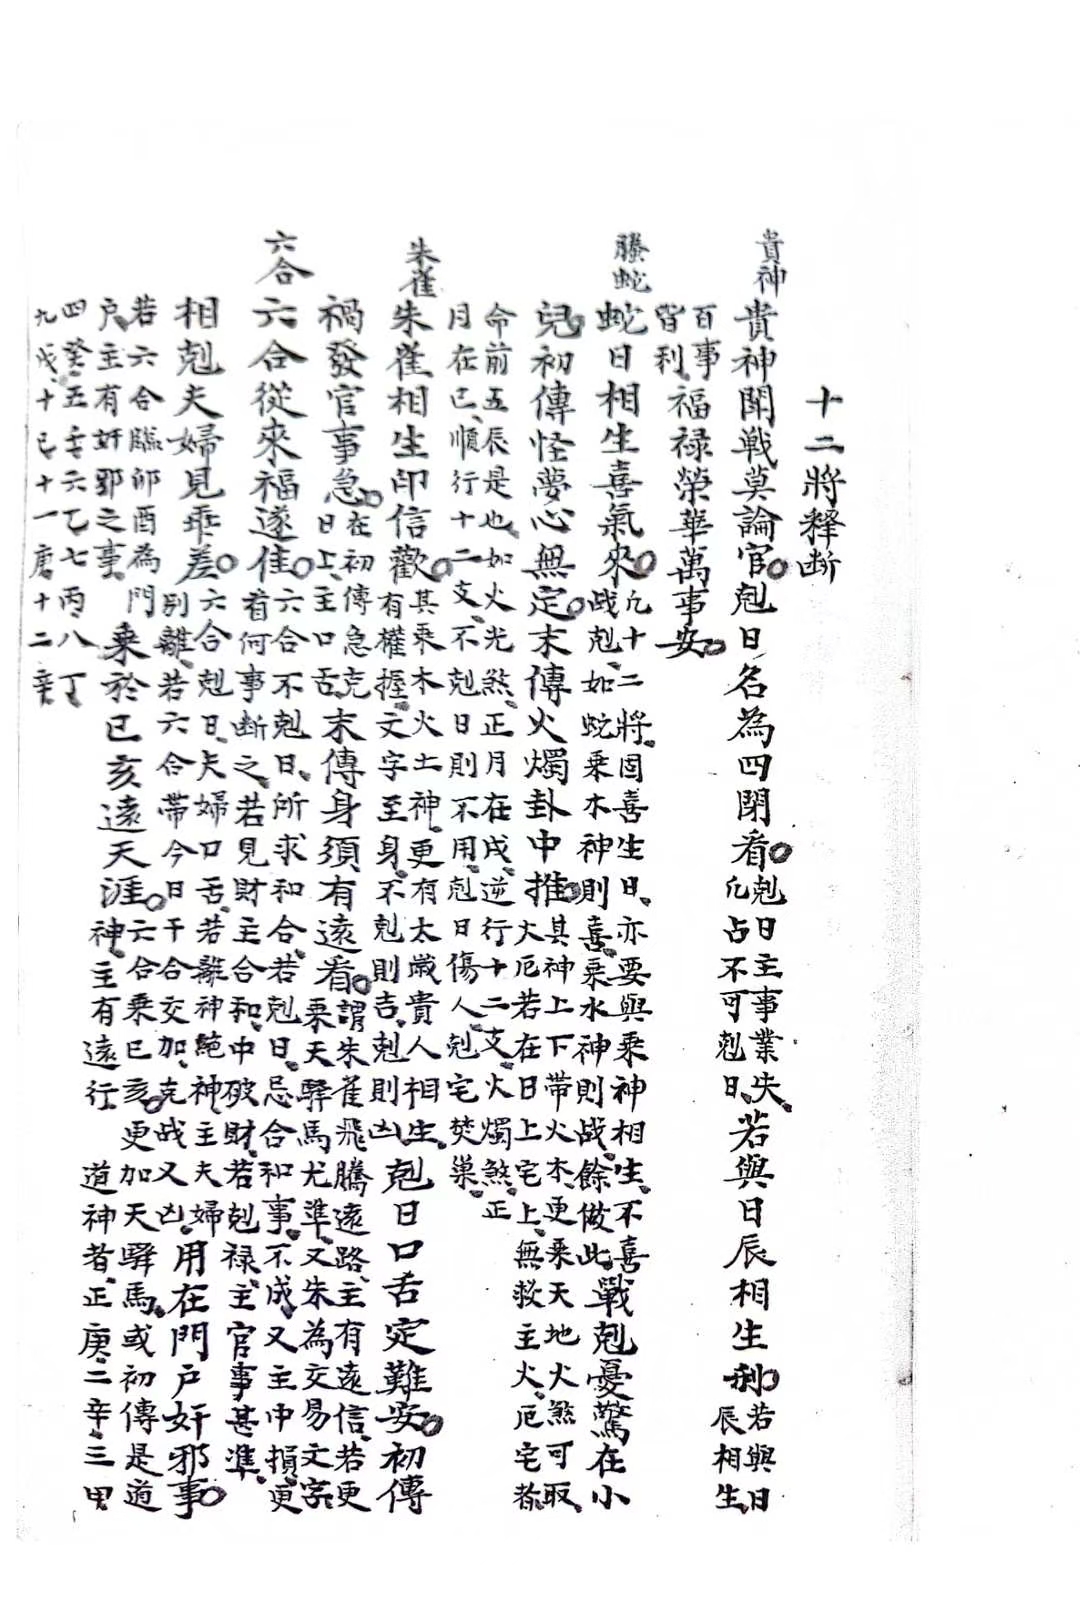 十二將釋断
貴神
貴神閗戦莫論官剋日名為四閉看剋日主事業失凡占不可剋日若與日辰相生利若與日辰相生
百事皆利福禄榮華萬事安
螣蛇
蛇日相生喜氣來凡十二將固喜生日亦要與乘神相生不喜战剋如蛇乘木神則喜乘水神則战餘倣此戰剋憂驚在小
兒初傳怪夢心無定末傳火燭卦中推其神上下帶火木更乘天地火煞可取火厄若在日上宅上無救主火厄宅
命前五辰是也如火光煞正月在戌逆行十二支火燭煞正
月在巳順行十二支不剋日則不用剋日傷人剋宅焚巢
朱雀
朱雀相生印信歡其乘木火土神更有太歲貴人相生有權握文字至身不剋則吉剋則凶剋日口舌定難安初傳
禍發官事急在初傳急克日上主口舌末傳身須有遠看謂朱雀飛騰遠路主有遠信若更乘天驛馬尤準又朱為交易文字
六合
六合從來福遂佳六合不剋日所求和合若剋日忌合和事不成又主中損更看何事断之若見財主合和中破財若剋禄主官事甚準
相剋夫婦見乖差六合剋日夫婦口舌若離神絕神主夫婦別離若六合帶今日干合交加克战又凶用在門户奸邪事
若六合臨卯酉為門户主有奸邪之事乘於巳亥遠天涯六合乘巳亥更加天驛馬或初傳是道神主有遠行道神者正庚二辛三甲
四癸五壬六乙七丙八丁
九戊十己十一庚十二辛